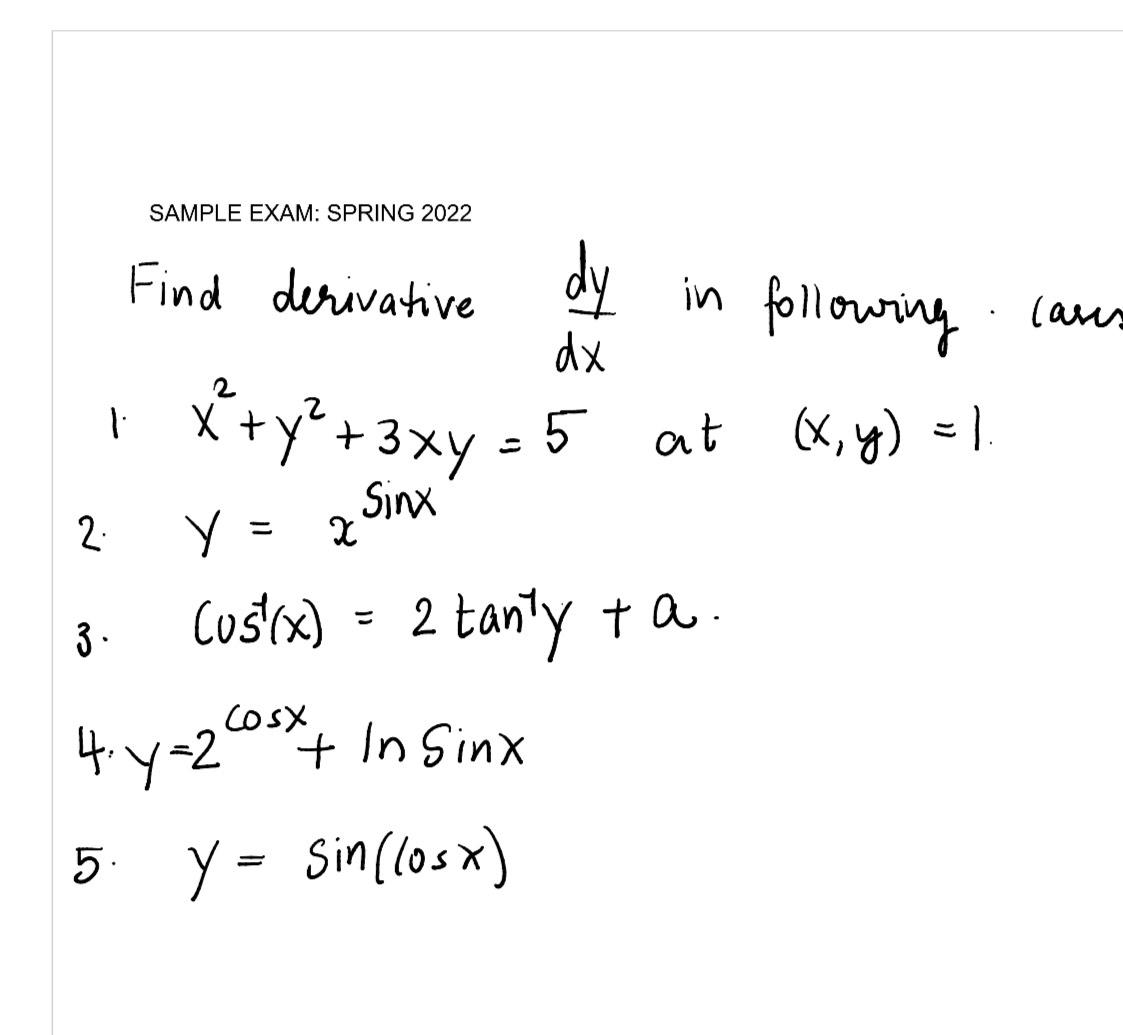 SAMPLE EXAM: SPRING 2022
Find derivative dy/dx in following cases
1. x² + y² + 3xy = 5 at (x, y) = 1.
2. y = x^Sinx
3. Cos⁻¹(x) = 2 tan⁻¹y + a.
4. y = 2^Cosx + ln Sinx
5. y = Sin(Cosx)